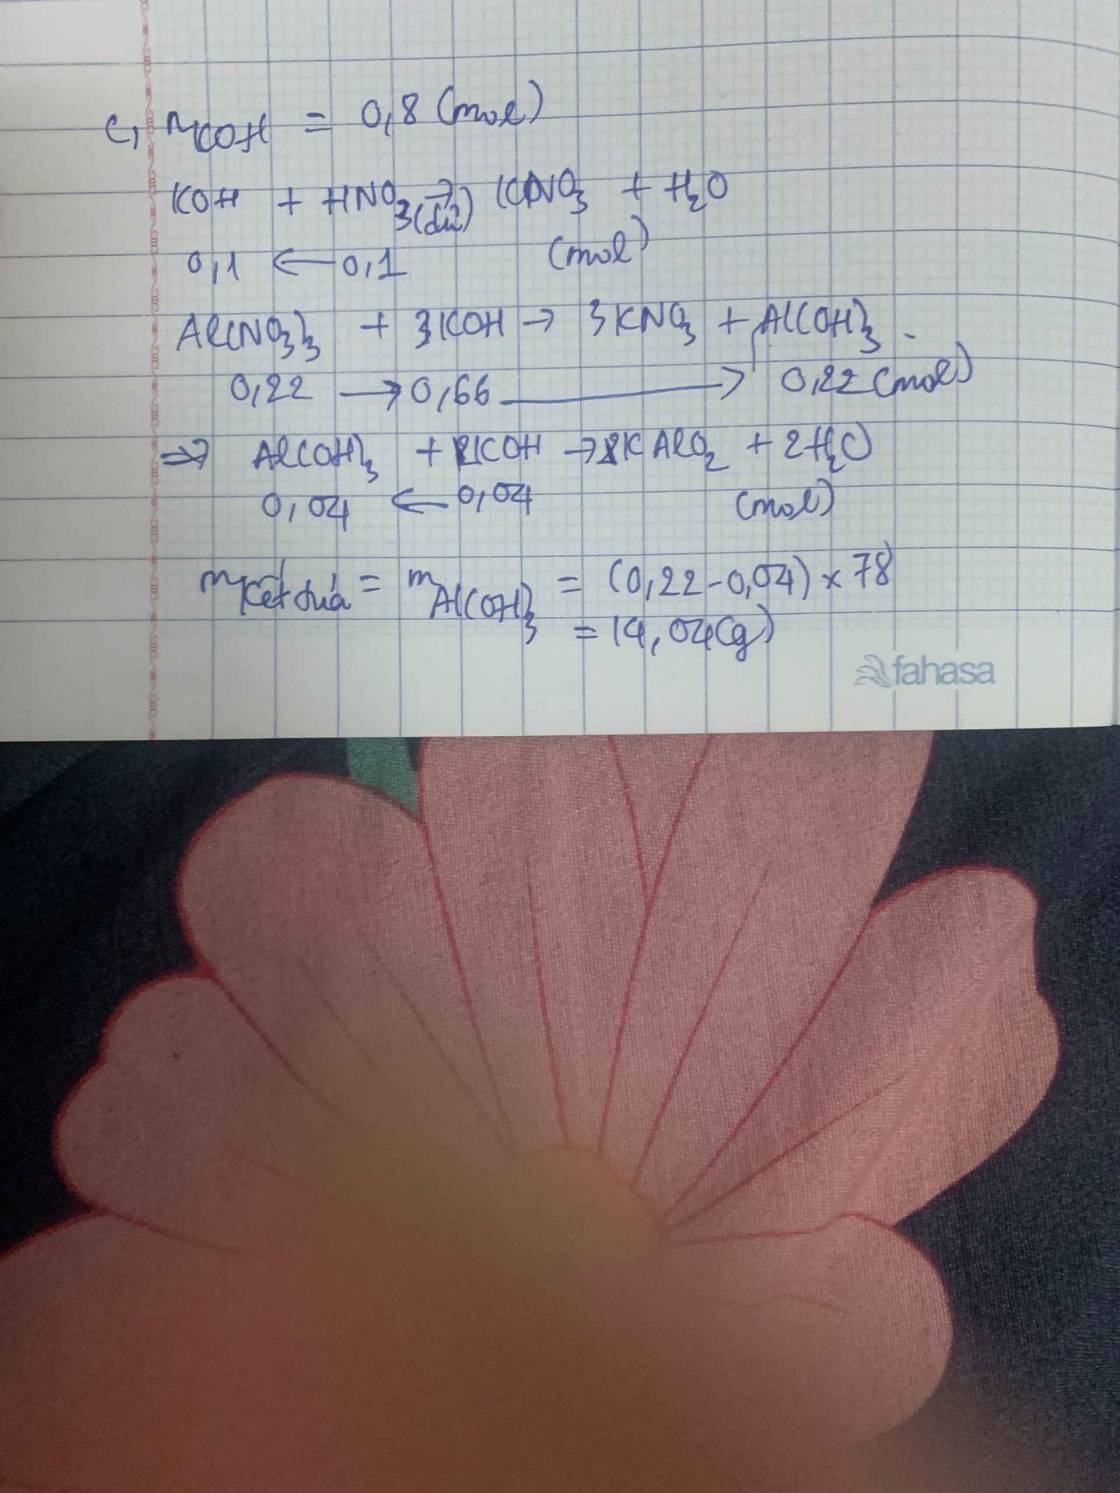 c, nKOH = 0,8 (mol)
KOH + HNO3(dư) → KNO3 + H2O
0,1 ← 0,1 (mol)
Al(NO3)3 + 3KOH → 3KNO3 + Al(OH)3
0,22 → 0,66 → 0,22 (mol)
=> Al(OH)3 + KOH → KAlO2 + 2H2O
0,04 ← 0,04 (mol)
mKết tủa = mAl(OH)3 = (0,22-0,04) × 78
= 14,04(g)
fahasa